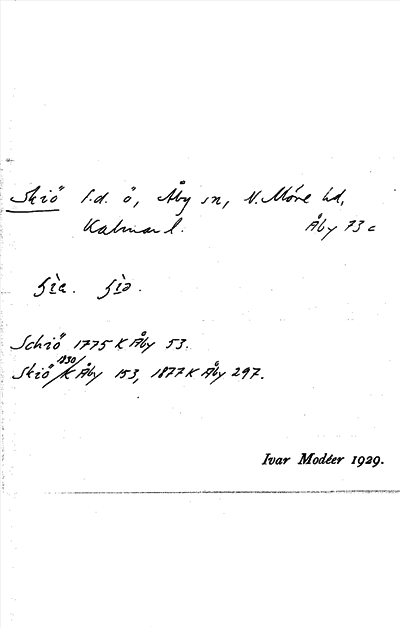 Skiö f.d. ö, Åby sn, N. Möre hd,
Kalmar l. Åby 73 c
Schiö 1775 K Åby 53.
Skiö 1830/K Åby 153, 1877 K Åby 297.
Ivar Modéer 1929.